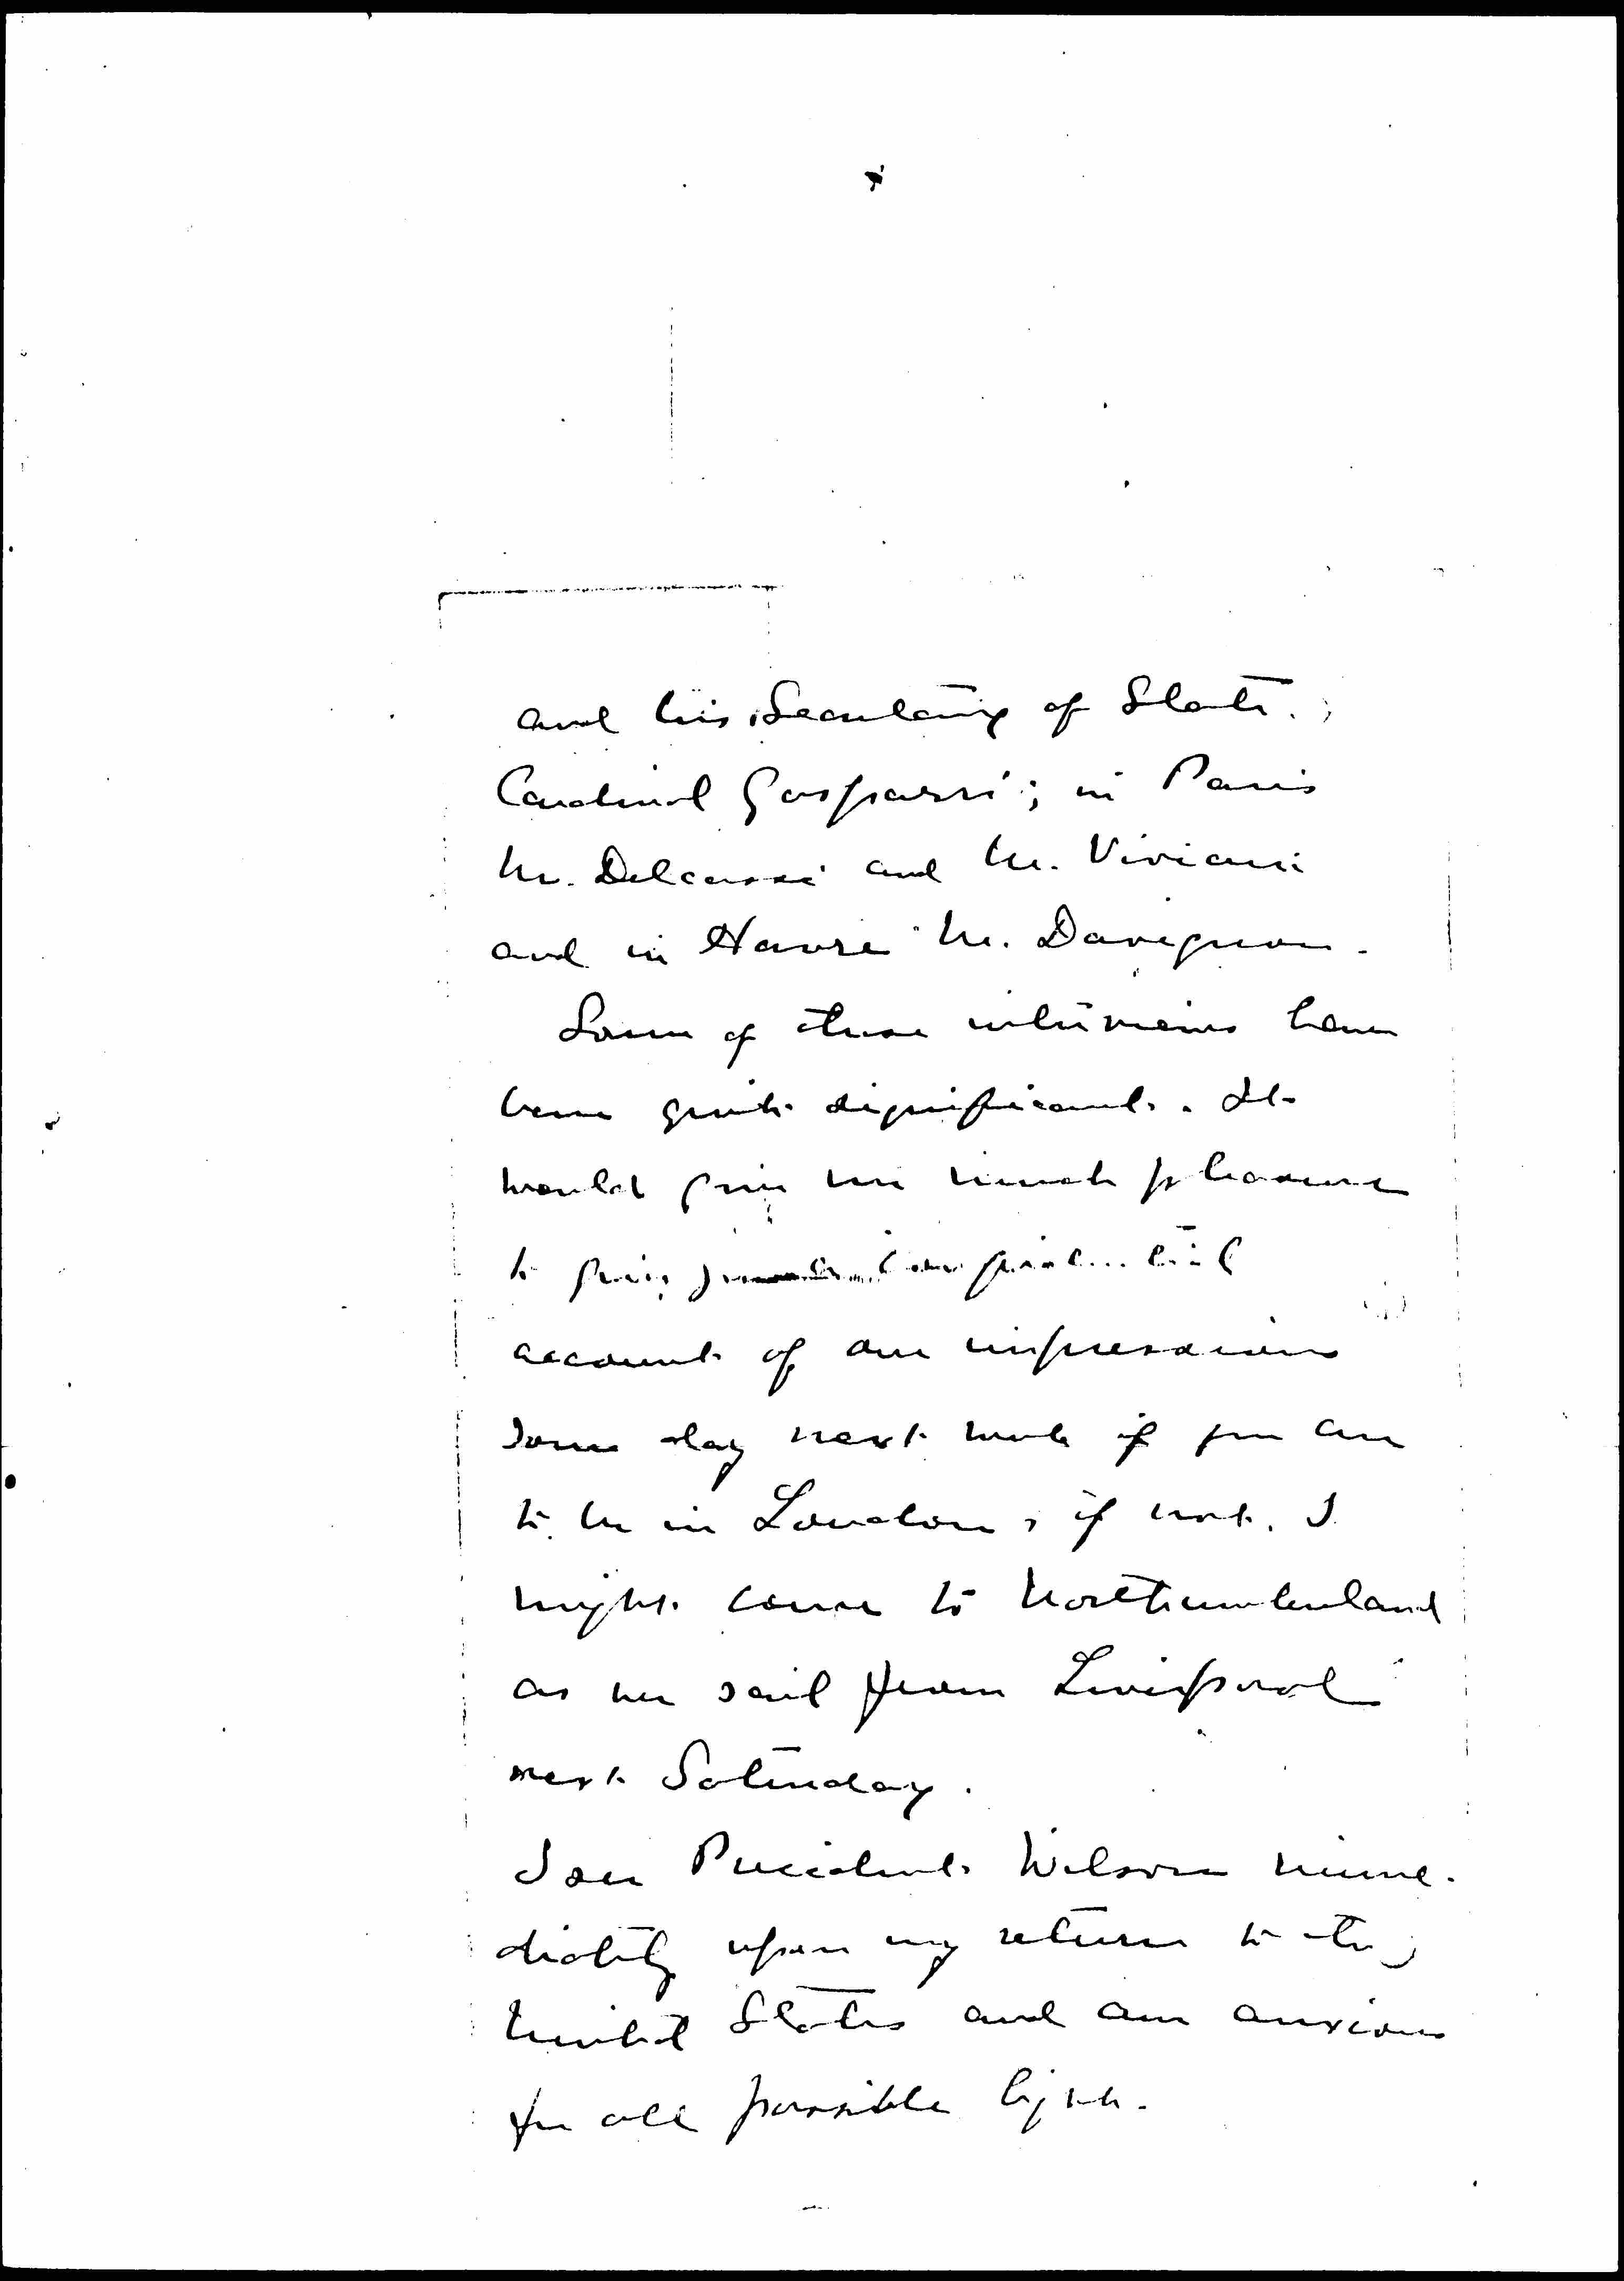 and his Secretary of State,
Cardinal Gasparri; in Paris
M. Delcassé and M. Viviani
and in Havre M. Davignon.
Some of these interviews have
been quite significant. It
would give me much pleasure
to give you a confidential
account of our impressions
some day next week if you are
to be in London; if not, I
might come to Northumberland
as we sail from Liverpool
next Saturday.
I see President Wilson imme-
diately upon my return to the
United States and am anxious
for all possible light.